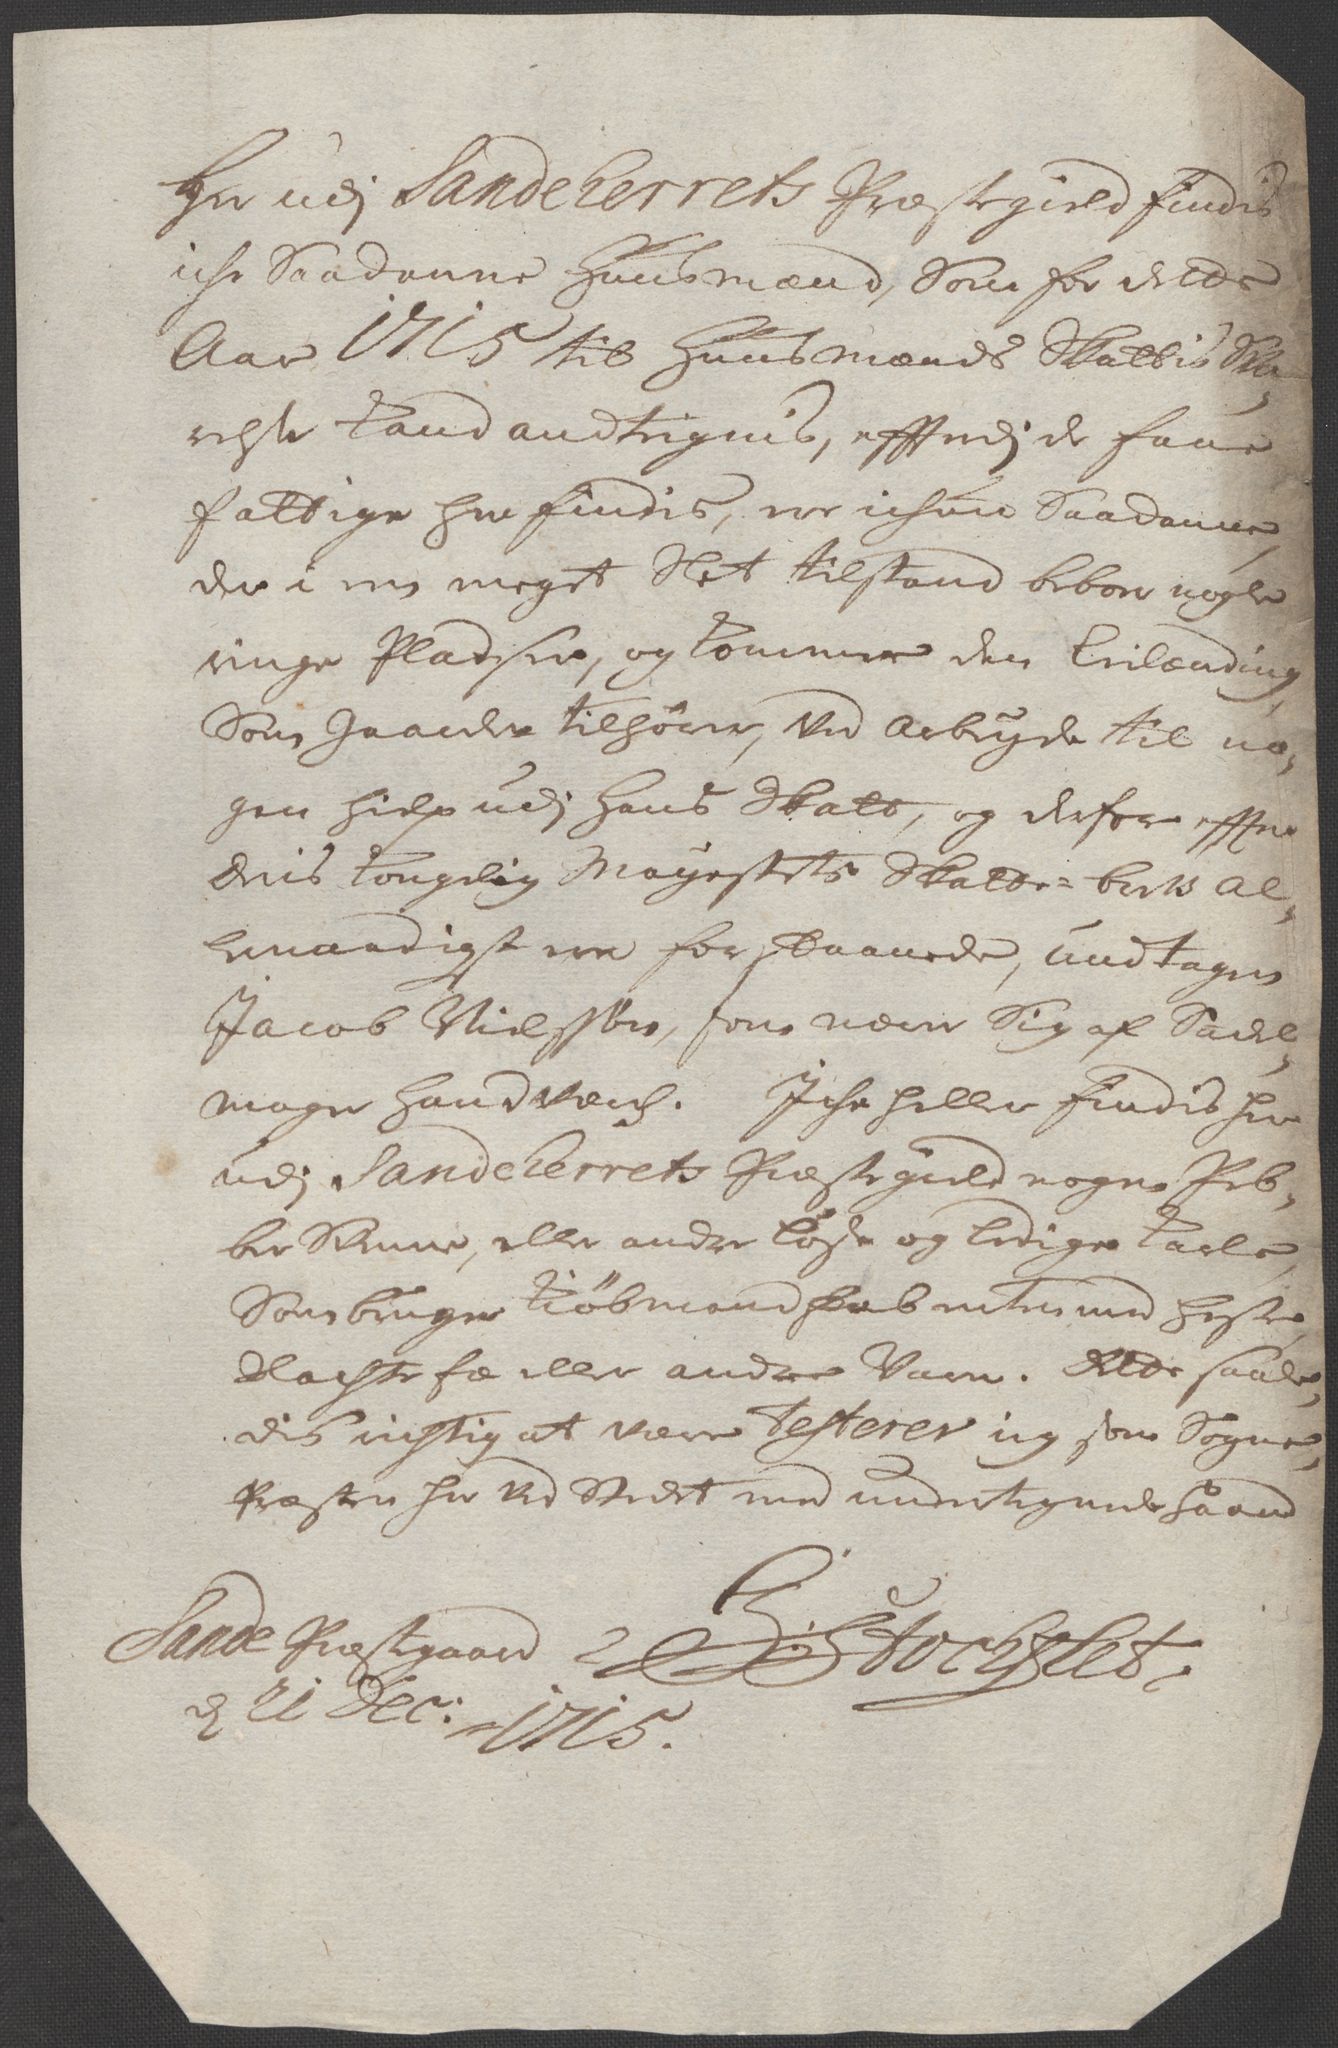 Her udj Sandeherrets Præstegield findis
iche Saadanne Huusmænd, Som for dette
Aar 1715 til Huusmænds Skattis
Kand andtegnis, effterdj de faae
fattige her findis, ere ichun Saadanne,
der i en meget Slet tilstand beboer nogle
ringe Pladser, og kommer den Leilænding,
Som Jorden tilhörer, ved Arbeyde til no,
gen hielp udj hans Skatt, og derfore effter
deris Kongelig Mayestets Skatte=brefs Al,
lernaadigst ere forskaanede, undtagen
Jacob Nielssön, som nærer Sig af Sadel,
mager Handverch. Iche heller findis her
udj Sandeherrets Præstegield nogen Peb,
ber Svenne, eller andre löse og ledige Karle,
Som bruger Kiöbmandskab enten med heste,
Slachtefæ eller andre Varer. Dette saale,
dis rigtig at være testerer ieg som Sogne,
Præsten her ved Stedet med underteignede haand
Sande Præstgaard
d 21 Dec: 1715.
Stochflet